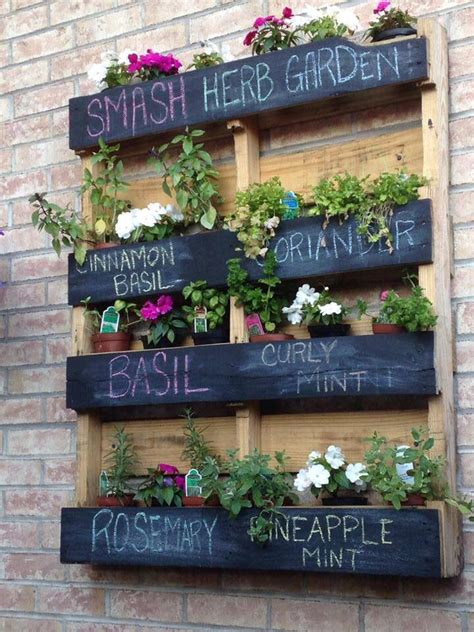 SMASH HERB GARDEN
CINNAMON
BASIL
CORIANDER
BASIL
CURLY
MINT
ROSEMARY
PINEAPPLE
MINT